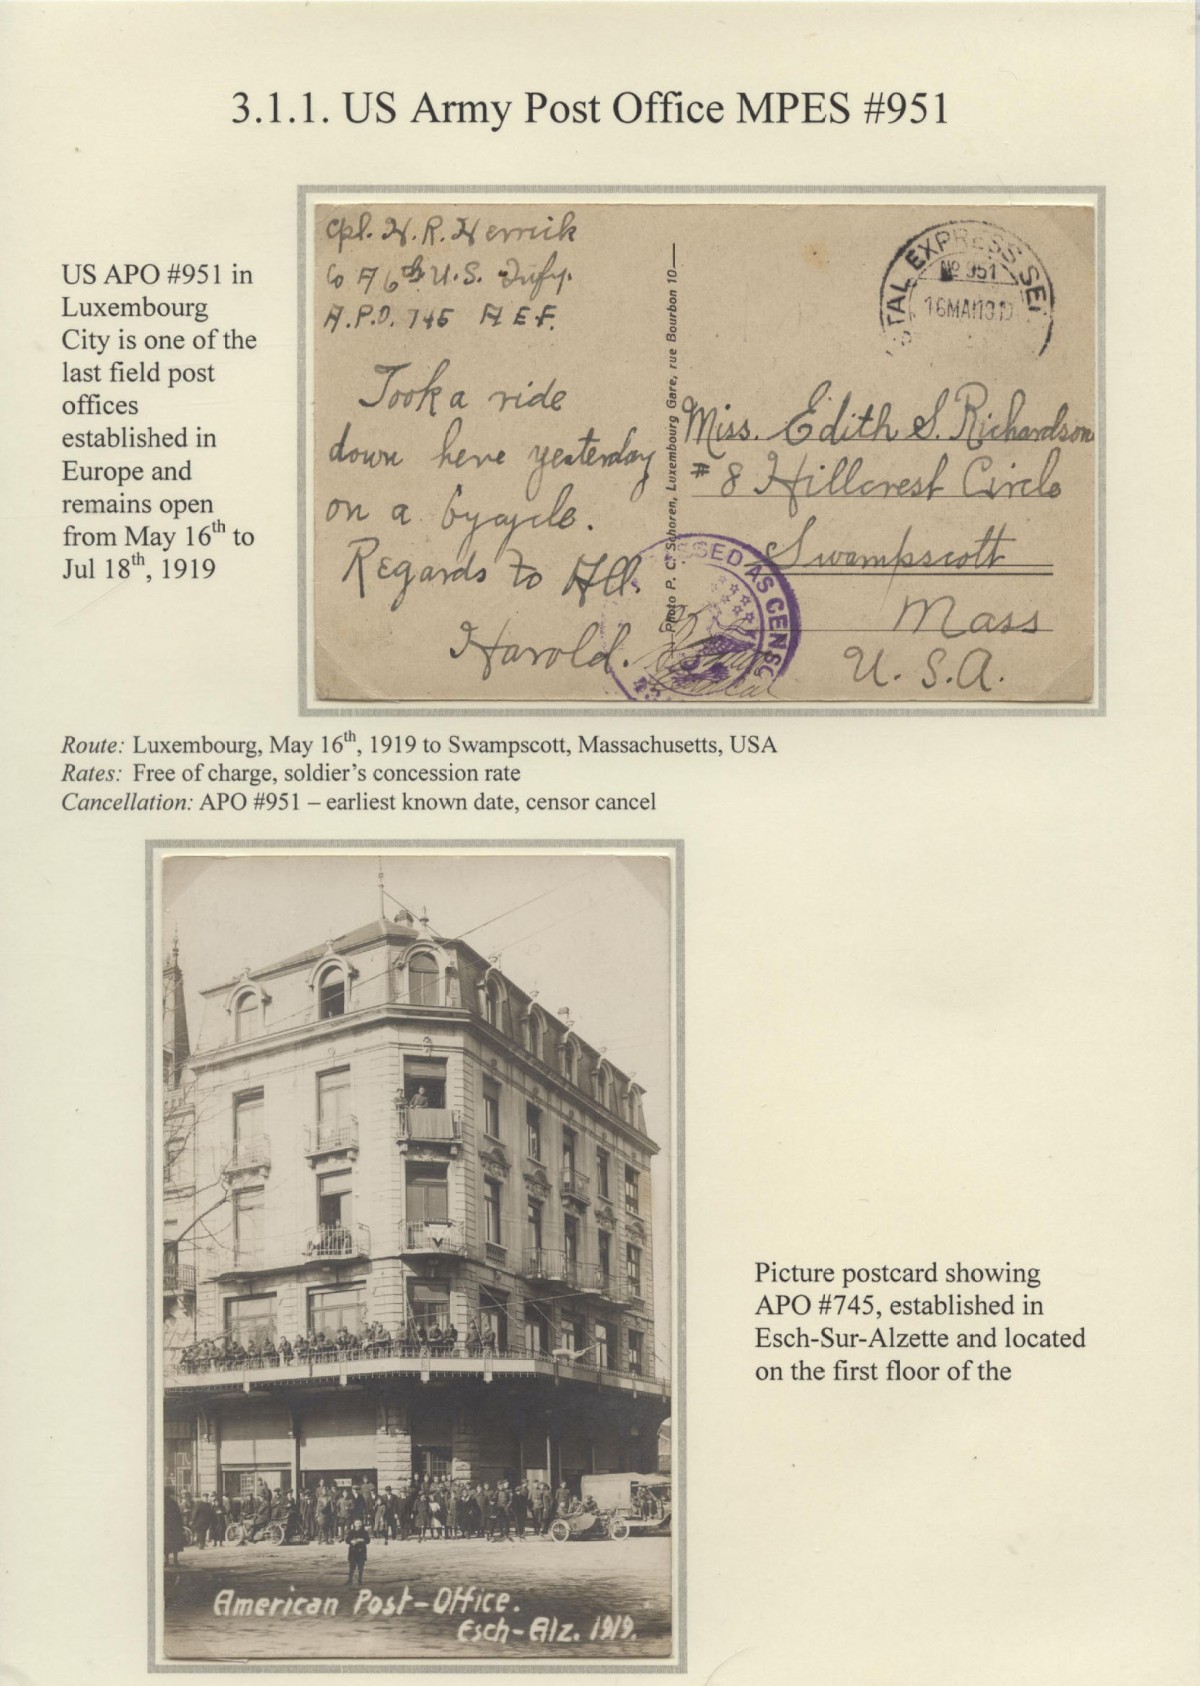 3.1.1. US Army Post Office MPES #951
US APO #951 in
Luxembourg
City is one of the
last field post
offices
established in
Europe and
remains open
from May 16th to
Jul 18th, 1919
Cpl. H. R. Herrick
Co A 6th U.S. Infy.
A.P.O. 745 A E F.
Took a ride
down here yesterday
on a bycycle.
Regards to All.
Harold.
Photo P. C. Schoren, Luxembourg Gare, rue Bourbon 10
STAL EXPRESS SER
No 951
16MAI1919
Miss. Edith S. Richardson
# 8 Hillcrest Circle
Swampscott
Mass
U. S. A.
SSED AS CENSO
Route: Luxembourg, May 16th, 1919 to Swampscott, Massachusetts, USA
Rates: Free of charge, soldier's concession rate
Cancellation: APO #951 – earliest known date, censor cancel
American Post-Office.
Esch-Alz. 1919.
Picture postcard showing
APO #745, established in
Esch-Sur-Alzette and located
on the first floor of the